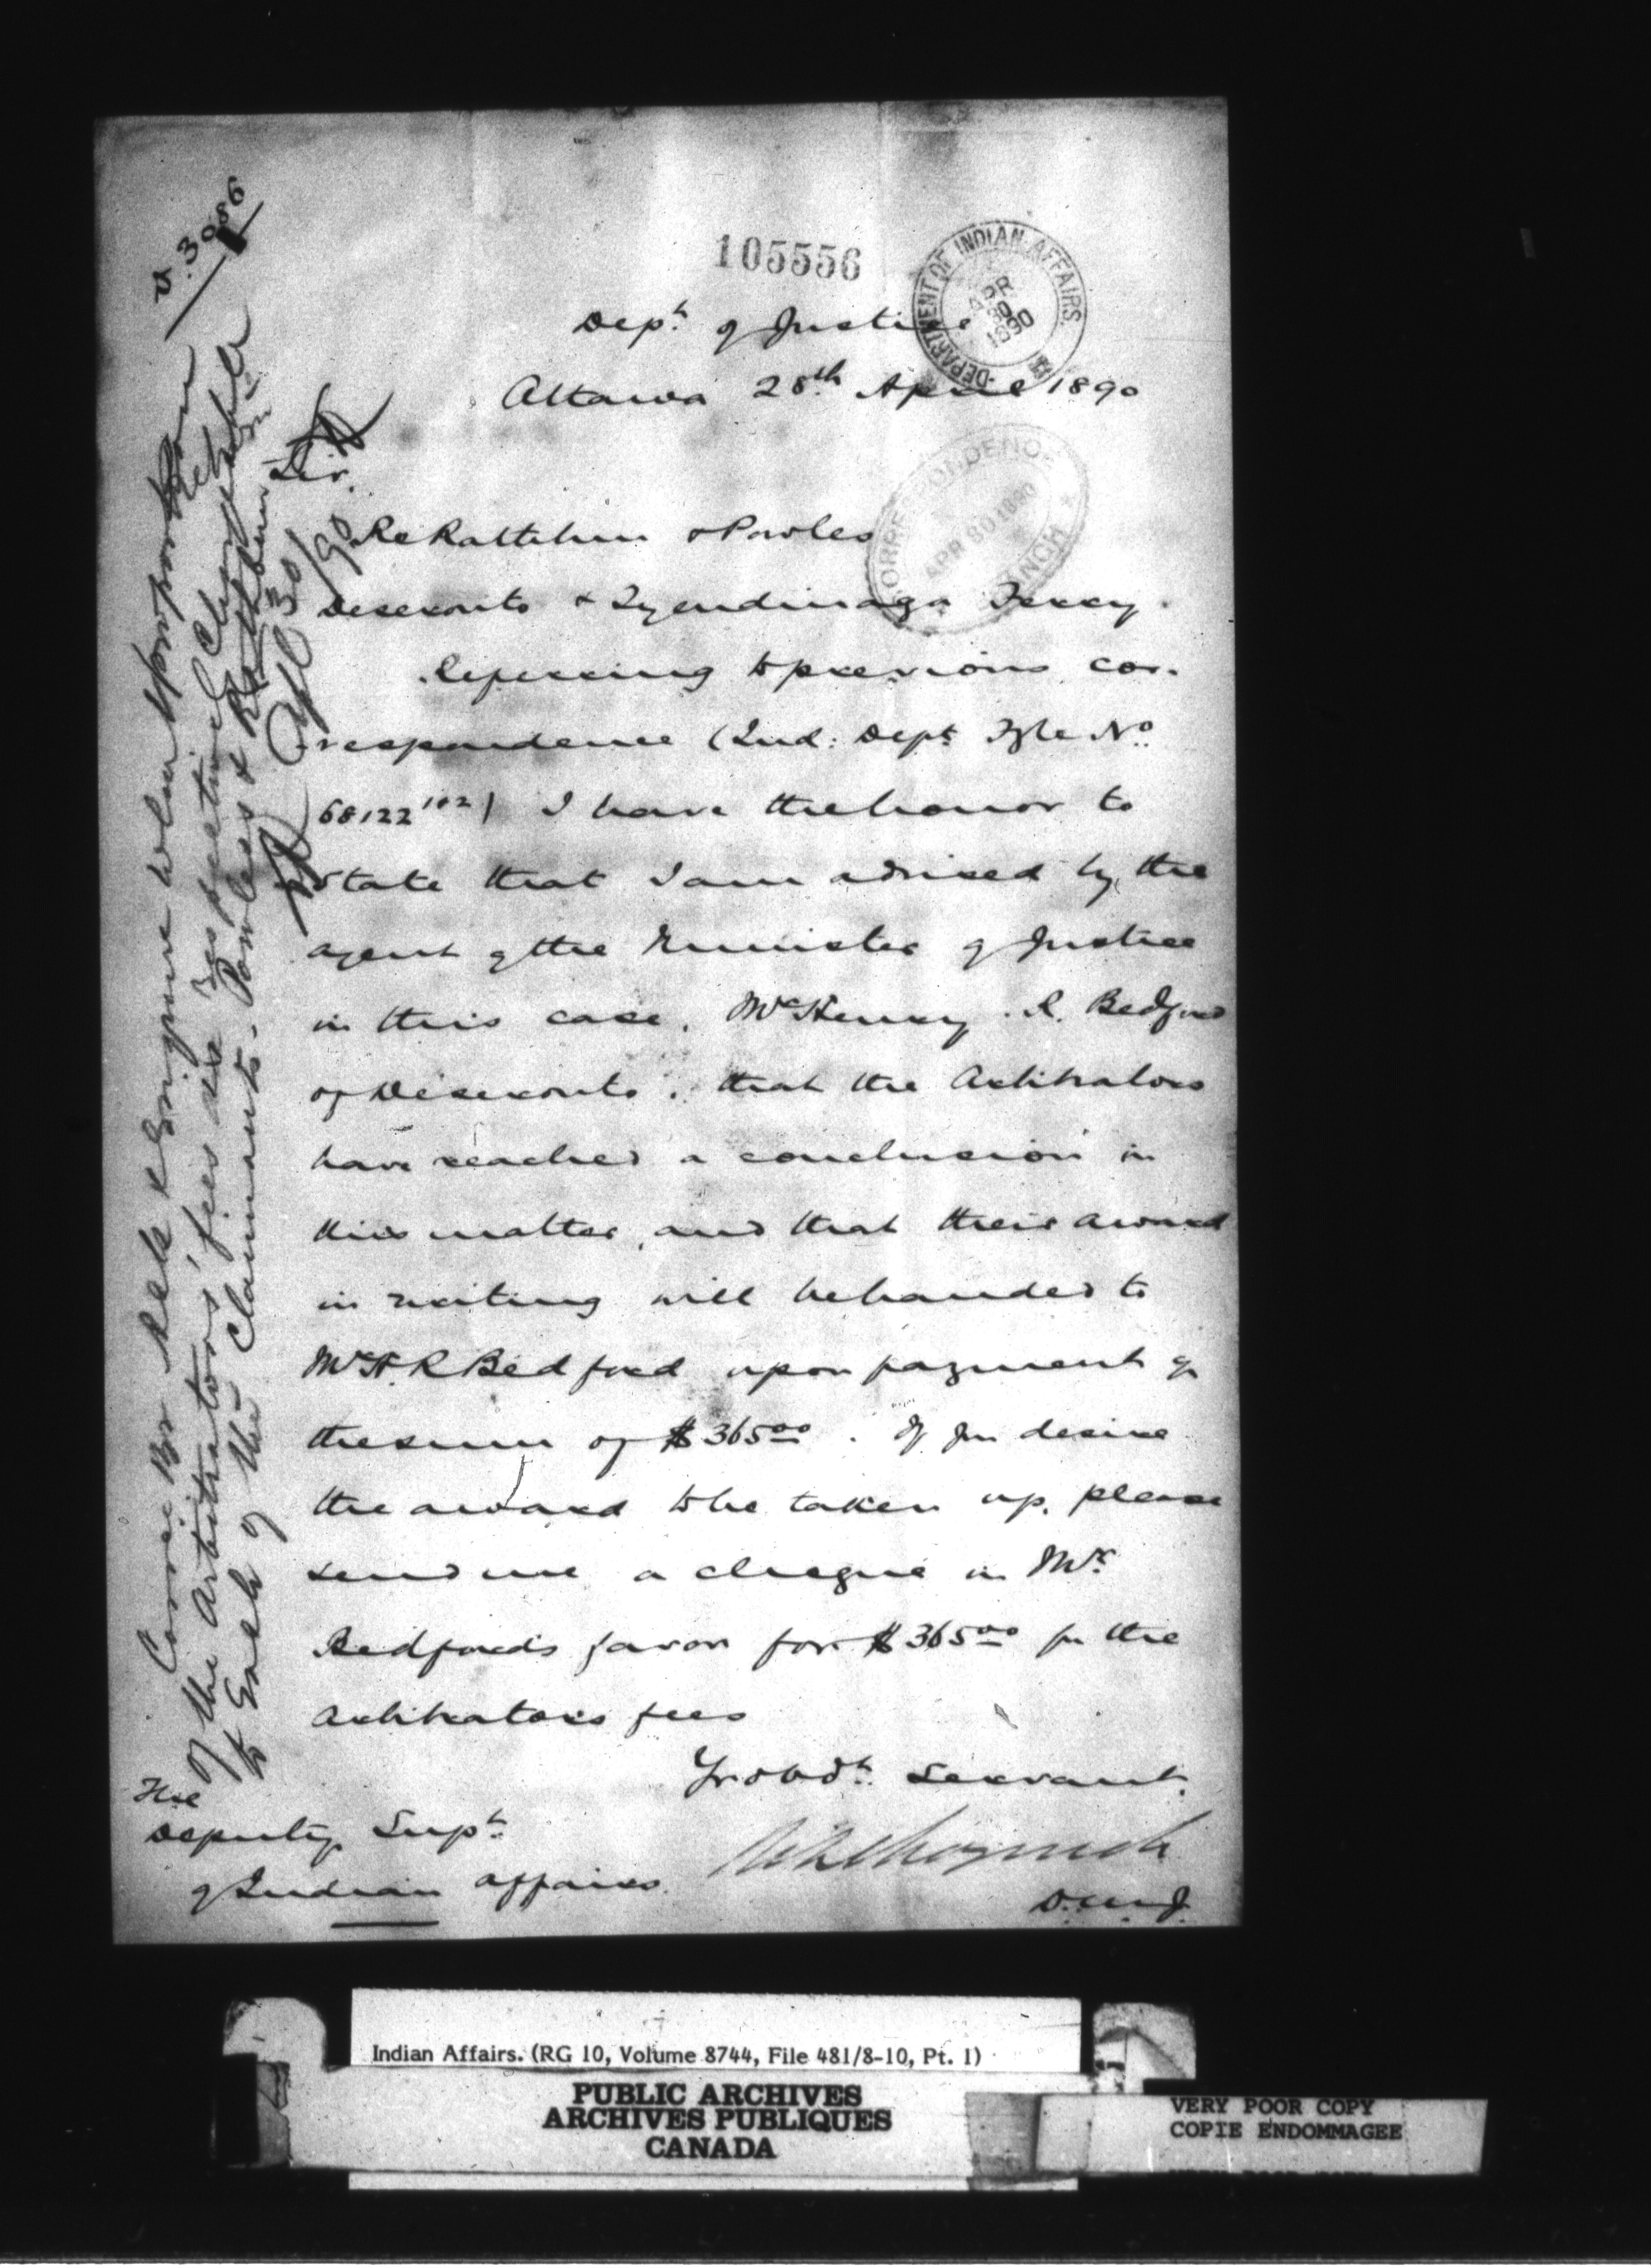 105556
DEPARTMENT OF INDIAN AFFAIRS.
APR
30
1890
Dept. of Justice
Ottawa 28th April 1890
CORRESPONDENCE
APR 30 1890
BRANCH
Sir,
Re Rathbun & Powles
Deseronto & Tyendinaga Ferry.
Referring to previous cor-
respondence (Ind: Dept. Fyle No.
68122 102) I have the honor to
state that I am advised by the
agent of the Minister of Justice
in this case. Mr Henry R. Bedford
of Deseronto, that the Arbitrators
have reached a conclusion in
this matter, and that their award
in writing will be handed to
Mr H. R Bedford upon payment of
the sum of $365.00. If you desire
the award to be taken up, please
send me a cheque in Mr.
Bedford's favor for $365.00 for the
Arbitrators fees
Yr obdt. Servant.
D.M.J.
The
Deputy Supt.
of Indian Affairs.
of the Arbitrators' fees are respectively Chargeable
to Each of the Claimants. Powless & Rathbun
Apl 30/90
Indian Affairs. (RG 10, Volume 8744, File 481/8-10, Pt. 1)
PUBLIC ARCHIVES
ARCHIVES PUBLIQUES
CANADA
VERY POOR COPY
COPIE ENDOMMAGEE